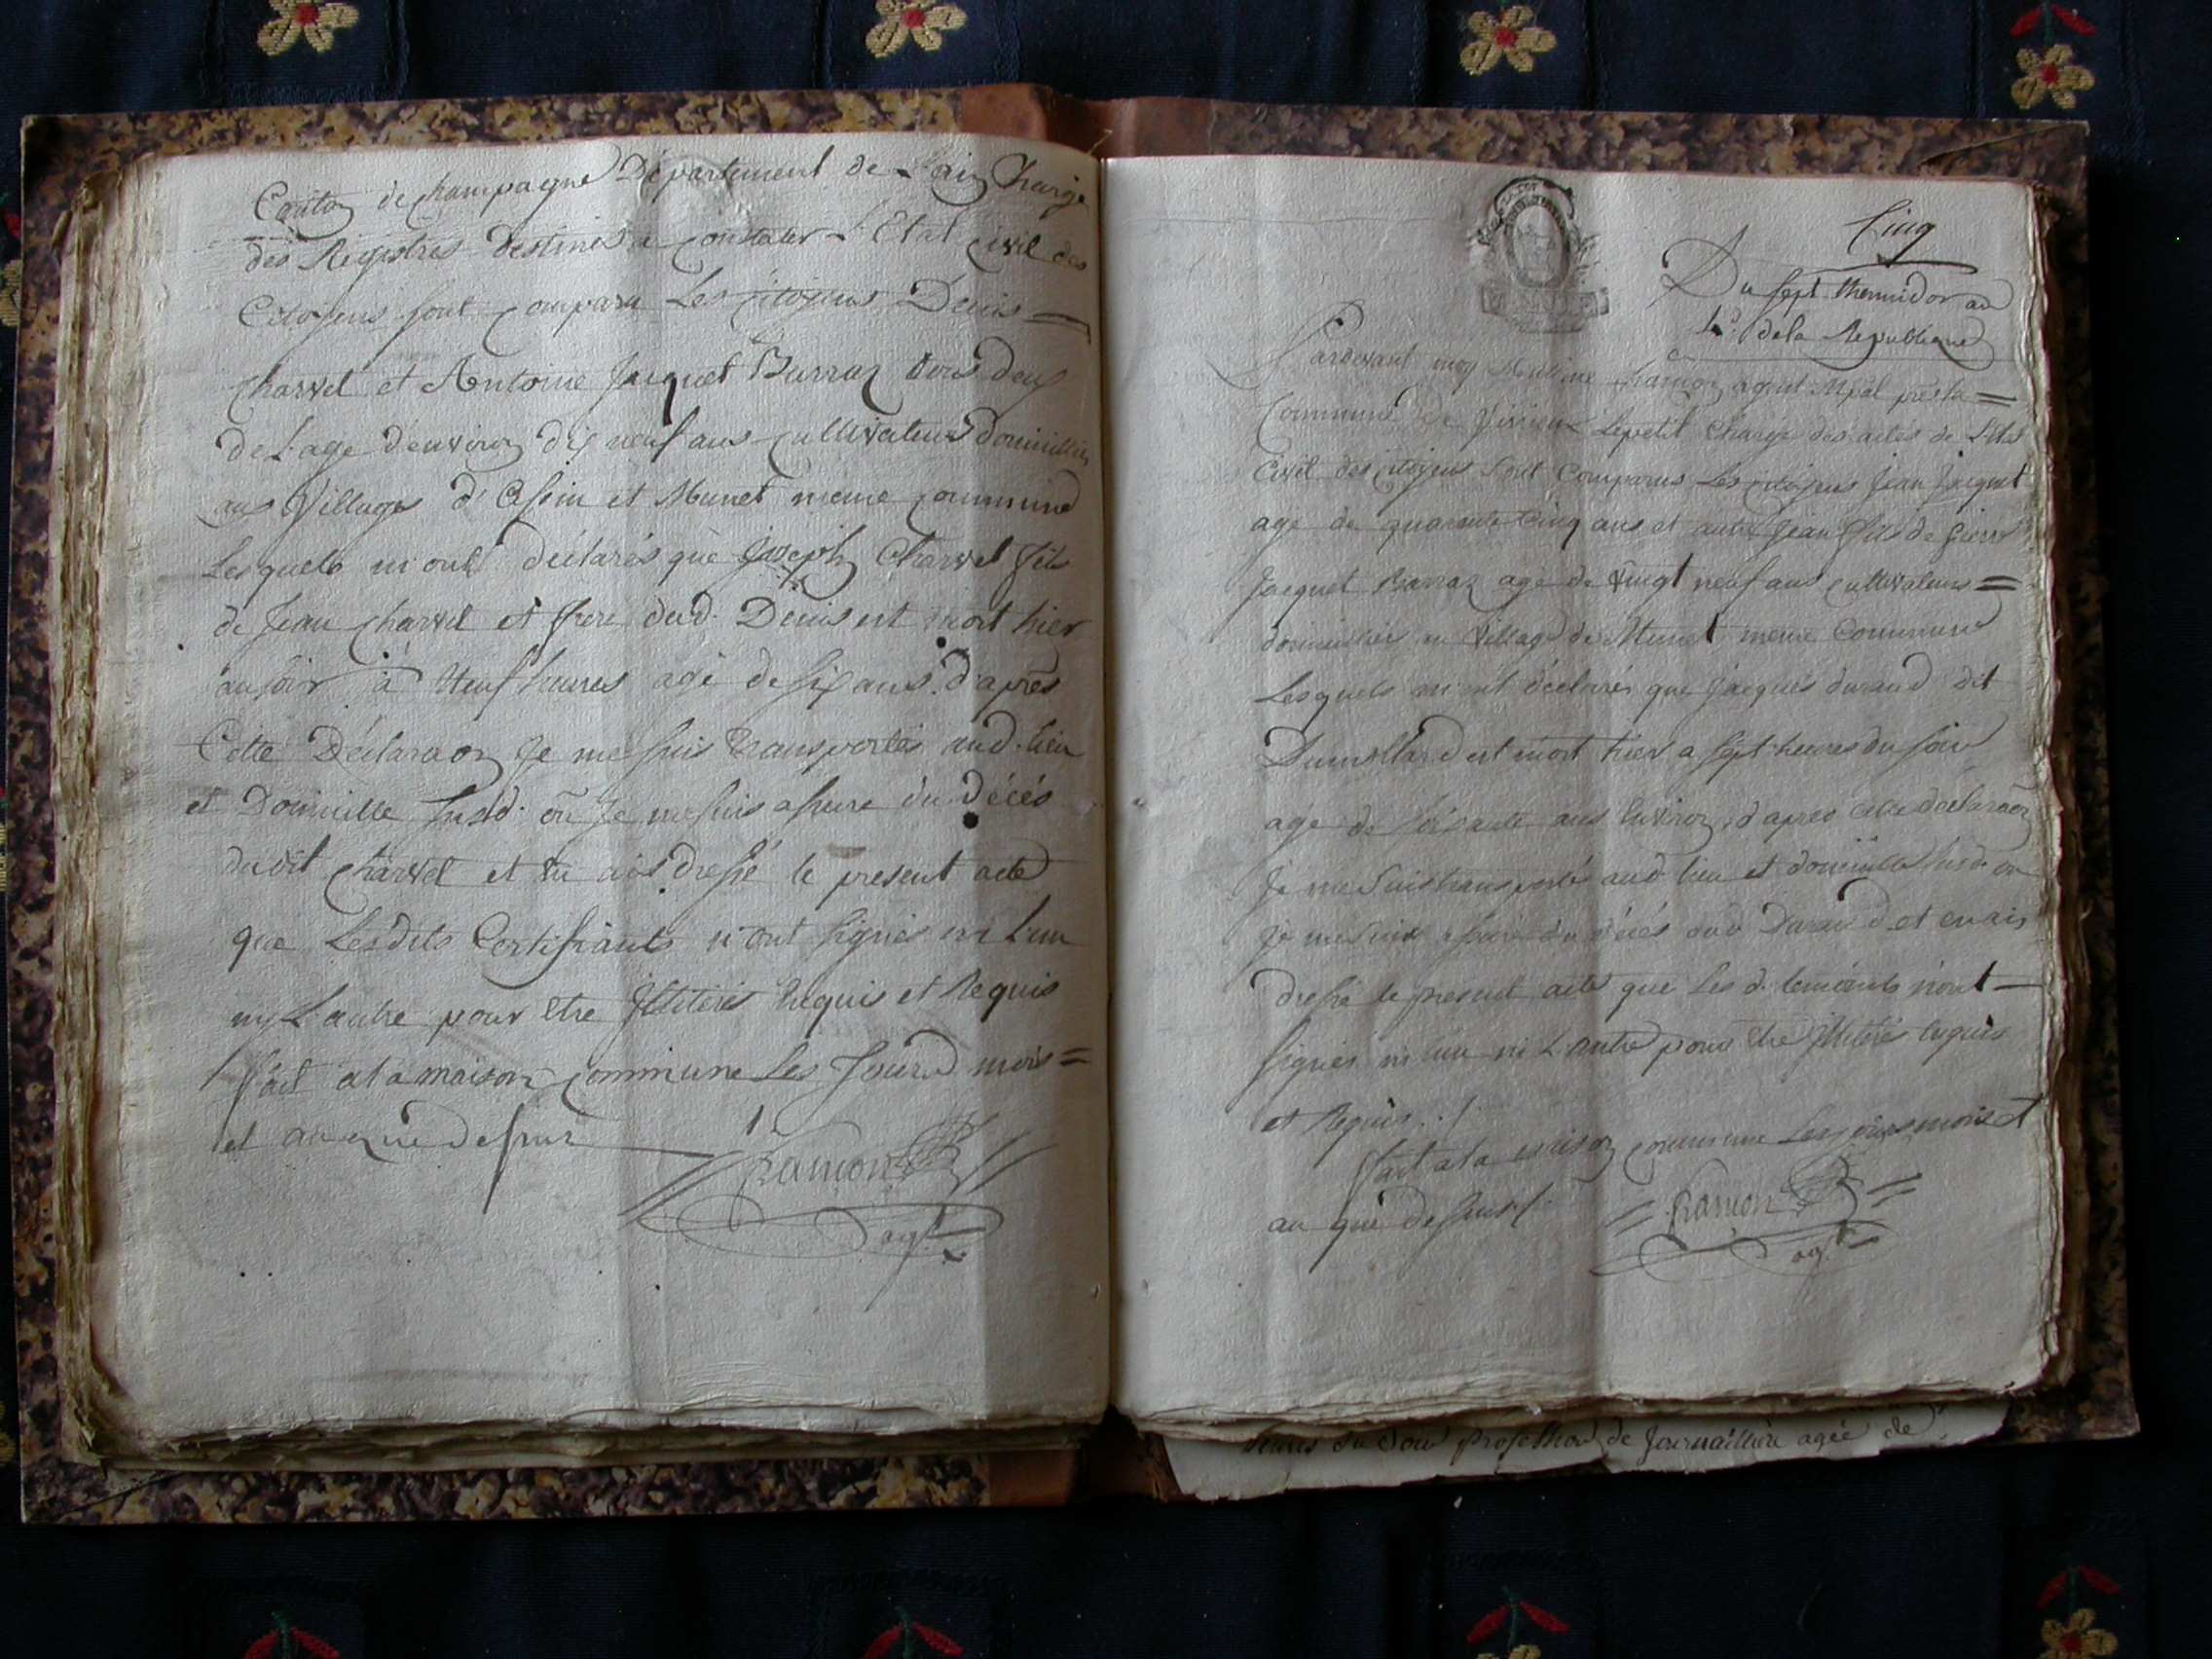 Canton de champagne Département de L'ain Charge
des Registres destinés a constater L'Etat civil des
Citoyens sont comparu Les citoyens Denis =
charvet et Antoine Jacquet Burraz tous deux
de L'age d'environ dix neuf ans cultivateurs domiciliés
aus Villages d' et Munet meme commune
Lesquels m'ont déclarés que Joseph Charvet fils
de Jean charvet et frere dud. Denis est mort hier
au soir à Neuf heures agé de six ans. d'aprés
Cette Déclaraõn Je me suis transportés aud. lieu
et Domicille susd. ou Je me suis assure du décés
dudit charvet et en ais dressé le present acte
que Lesdits Certifiants n'ont signés ni L'un
ny L'autre pour être Illiteré Enquis et Requis
fait a la maison commune Les Jour mois =
et an que dessus
Ramon
agt.
Cinq
Du sept thermidor an
4.e de la Republique
Pardevant moy Ramon agent Mpal presta =
Commune de Virieu Lepetit Chargé des actes de L'Etat
Civil des citoyens sont Comparus Les citoyens Jean Jacquet
age de quarante Cinq ans et autre Jean fils de Pierre
Jacquet Burraz age de Vingt neuf ans cultivateurs =
domiciliés au Village de Munet meme Commune
Lesquels m'ont déclarés que Jacques durand dit
Dumollard est mort hier a sept heures du soir
age de soixante ans Environ, d'apres cette déclaraõn
Je me suis transportés aud. lieu et domicille susd. ou
Je me suis assure du décés dud Durand et en ais
dressé le present acte que Les d. temoints n'ont —
signés ni l'un ni L'autre pour être Illiteré enquis
et Requis ./
fait a la maison commune Les jours mois et
an que dessus /.
Ramon
agt.
heures du soir profession de Journaillière agée de